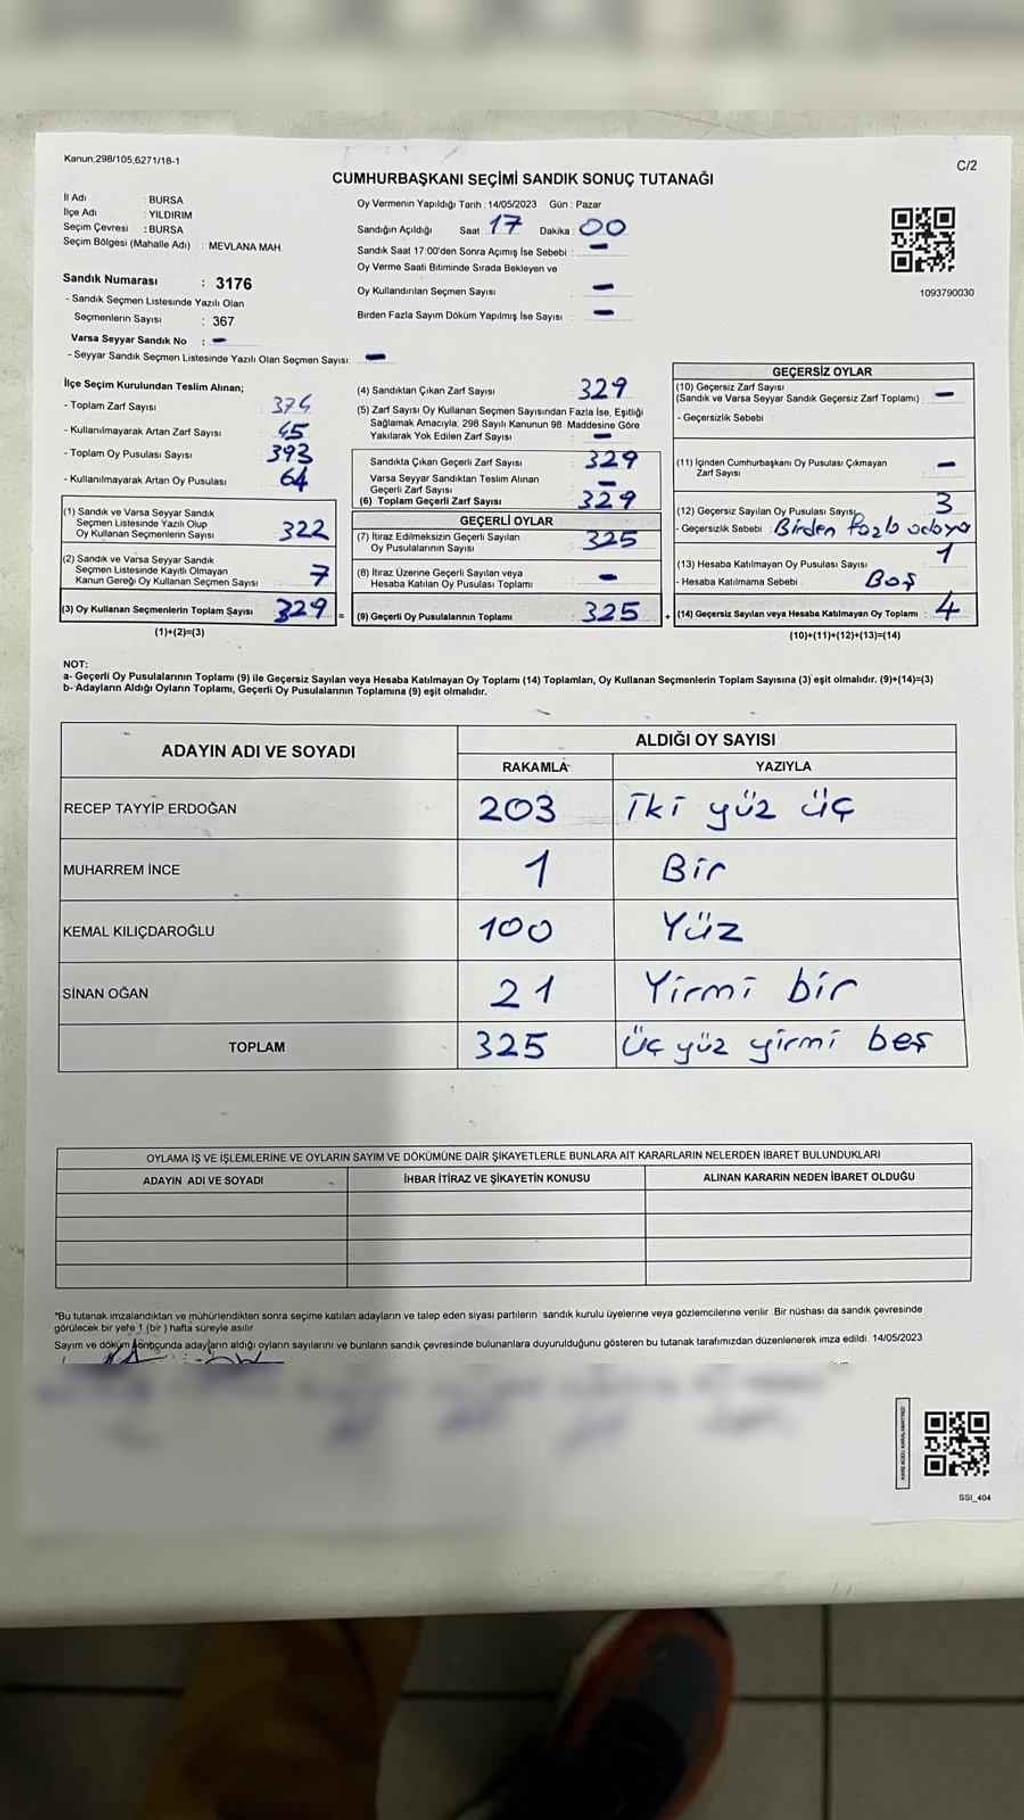 Kanun,298/105,6271/18-1
C/2
CUMHURBAŞKANI SEÇİMİ SANDIK SONUÇ TUTANAĞI
İl Adı : BURSA
İlçe Adı : YILDIRIM
Seçim Çevresi : BURSA
Seçim Bölgesi (Mahalle Adı) : MEVLANA MAH.
Sandık Numarası : 3176
- Sandık Seçmen Listesinde Yazılı Olan
Seçmenlerin Sayısı : 367
Varsa Seyyar Sandık No : -
- Seyyar Sandık Seçmen Listesinde Yazılı Olan Seçmen Sayısı: -
Oy Vermenin Yapıldığı Tarih : 14/05/2023 Gün : Pazar
Sandığın Açıldığı Saat 17 Dakika : 00
Sandık Saat 17:00'den Sonra Açımış İse Sebebi : -
Oy Verme Saati Bitiminde Sırada Bekleyen ve
Oy Kullandırılan Seçmen Sayısı -
Birden Fazla Sayım Döküm Yapılmış İse Sayısı : -
1093790030
İlçe Seçim Kurulundan Teslim Alınan;
- Toplam Zarf Sayısı 374
- Kullanılmayarak Artan Zarf Sayısı 45
- Toplam Oy Pusulası Sayısı 393
- Kullanılmayarak Artan Oy Pusulası 64
(1) Sandık ve Varsa Seyyar Sandık
Seçmen Listesinde Yazılı Olup
Oy Kullanan Seçmenlerin Sayısı 322
(2) Sandık ve Varsa Seyyar Sandık
Seçmen Listesinde Kayıtlı Olmayan
Kanun Gereği Oy Kullanan Seçmen Sayısı 7
(3) Oy Kullanan Seçmenlerin Toplam Sayısı 329 =
(1)+(2)=(3)
(4) Sandıktan Çıkan Zarf Sayısı 329
(5) Zarf Sayısı Oy Kullanan Seçmen Sayısından Fazla İse, Eşitliği
Sağlamak Amacıyla, 298 Sayılı Kanunun 98. Maddesine Göre
Yakılarak Yok Edilen Zarf Sayısı -
Sandıkta Çıkan Geçerli Zarf Sayısı 329
Varsa Seyyar Sandıktan Teslim Alınan
Geçerli Zarf Sayısı -
(6) Toplam Geçerli Zarf Sayısı 329
GEÇERLİ OYLAR
(7) İtiraz Edilmeksizin Geçerli Sayılan
Oy Pusulalarının Sayısı 325
(8) İtiraz Üzerine Geçerli Sayılan veya
Hesaba Katılan Oy Pusulası Toplamı -
(9) Geçerli Oy Pusulalarının Toplamı 325 +
GEÇERSİZ OYLAR
(10) Geçersiz Zarf Sayısı
(Sandık ve Varsa Seyyar Sandık Geçersiz Zarf Toplamı) -
- Geçersizlik Sebebi
(11) İçinden Cumhurbaşkanı Oy Pusulası Çıkmayan
Zarf Sayısı -
(12) Geçersiz Sayılan Oy Pusulası Sayısı 3
- Geçersizlik Sebebi Birden fazla adaya
(13) Hesaba Katılmayan Oy Pusulası Sayısı 1
- Hesaba Katılmama Sebebi Boş
(14) Geçersiz Sayılan veya Hesaba Katılmayan Oy Toplamı 4
(10)+(11)+(12)+(13)=(14)
NOT:
a- Geçerli Oy Pusulalarının Toplamı (9) ile Geçersiz Sayılan veya Hesaba Katılmayan Oy Toplamı (14) Toplamları, Oy Kullanan Seçmenlerin Toplam Sayısına (3) eşit olmalıdır. (9)+(14)=(3)
b- Adayların Aldığı Oyların Toplamı, Geçerli Oy Pusulalarının Toplamına (9) eşit olmalıdır.
ADAYIN ADI VE SOYADI ALDIĞI OY SAYISI
RAKAMLA YAZIYLA
RECEP TAYYİP ERDOĞAN 203 İki yüz üç
MUHARREM İNCE 1 Bir
KEMAL KILIÇDAROĞLU 100 Yüz
SİNAN OĞAN 21 Yirmi bir
TOPLAM 325 Üç yüz yirmi beş
OYLAMA İŞ VE İŞLEMLERİNE VE OYLARIN SAYIM VE DÖKÜMÜNE DAİR ŞİKAYETLERLE BUNLARA AİT KARARLARIN NELERDEN İBARET BULUNDUKLARI
ADAYIN ADI VE SOYADI İHBAR İTİRAZ VE ŞİKAYETİN KONUSU ALINAN KARARIN NEDEN İBARET OLDUĞU
*Bu tutanak imzalandıktan ve mühürlendikten sonra seçime katılan adayların ve talep eden siyasi partilerin sandık kurulu üyelerine veya gözlemcilerine verilir. Bir nüshası da sandık çevresinde
görülecek bir yere 1 (bir) hafta süreyle asılır.
Sayım ve döküm sonucunda adayların aldığı oyların sayılarını ve bunların sandık çevresinde bulunanlara duyurulduğunu gösteren bu tutanak tarafımızdan düzenlenerek imza edildi. 14/05/2023
SSI_404